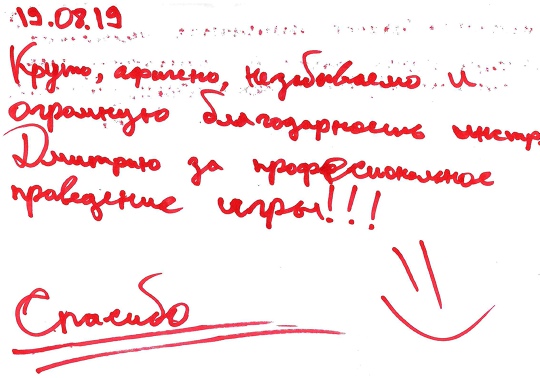 19.08.19
Круто, афигено, незабываемо и
огромную благодарность инстр.
Дмитрию за професиональное
проведение игры!!!
Спасибо